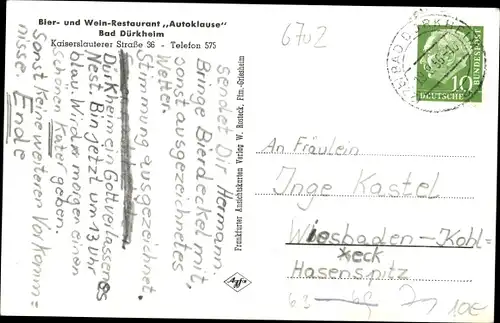 Bier- und Wein-Restaurant „Autoklause"
Bad Dürkheim
Kaiserslauterer Straße 36 - Telefon 575
sendet Dir Hermann.
Bringe Bierdeckel mit,
sonst ausgezeichnetes
Wetter.
Stimmung ausgezeichnet.
Dürkheim ein Gottverlassenes
Nest. Bin jetzt um 13 Uhr
blau. Wird morgen einen
schönen Kater geben.
Sonst keine weiteren Vorkomm=
nisse Ende
Frankfurter Ansichtskarten Verlag W. Rosteck, Ffm.-Griesheim
Agfa
6702
BAD DÜRKHEIM
10
DEUTSCHE
BUNDESPOST
An Fräulein
Inge Kastel
Wiesbaden-Kohl=
heck
Hasenspitz
63
10€